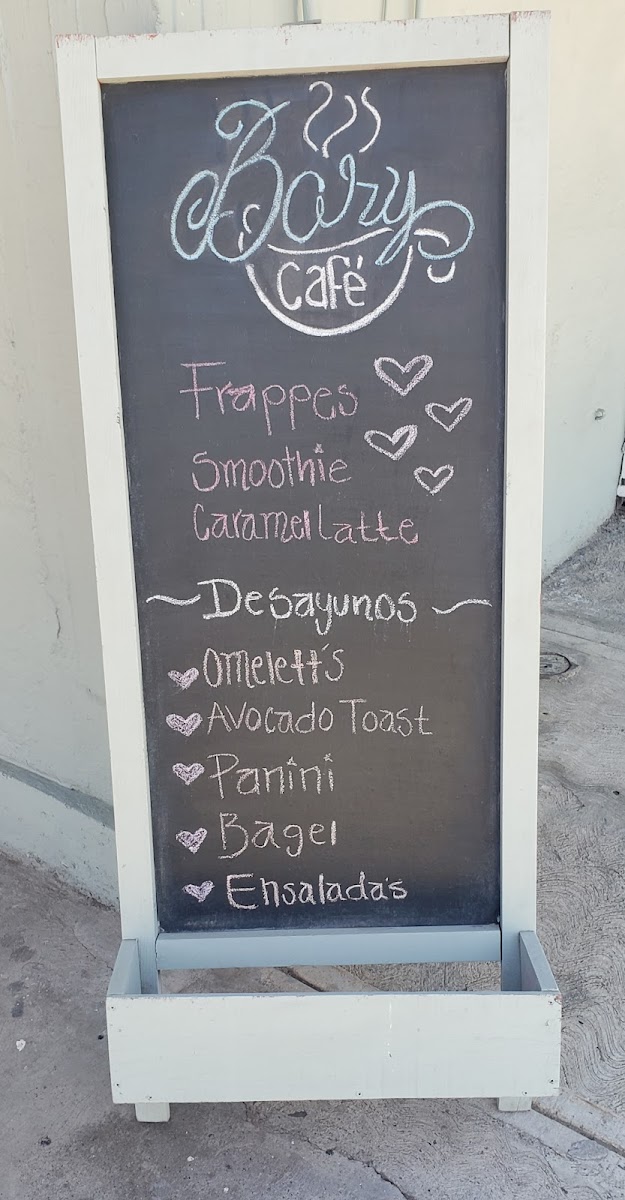 Bary
Café
Frappes
Smoothie
Caramel Latte
~Desayunos~
Omelett's
Avocado Toast
Panini
Bagel
Ensaladas